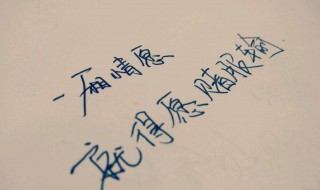 一厢情愿
就得愿赌服输